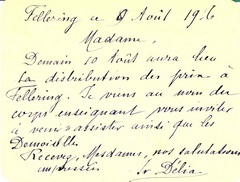 Fellering ce 8 Août 1916
Madame,
Demain 10 Août aura lieu
la distribution des prix à
Fellering. Je viens au nom du
corps enseignant vous inviter
à venir y assister ainsi que les
Demoiselles
Recevez, Mesdames, nos salutations
empressées Sr Délia